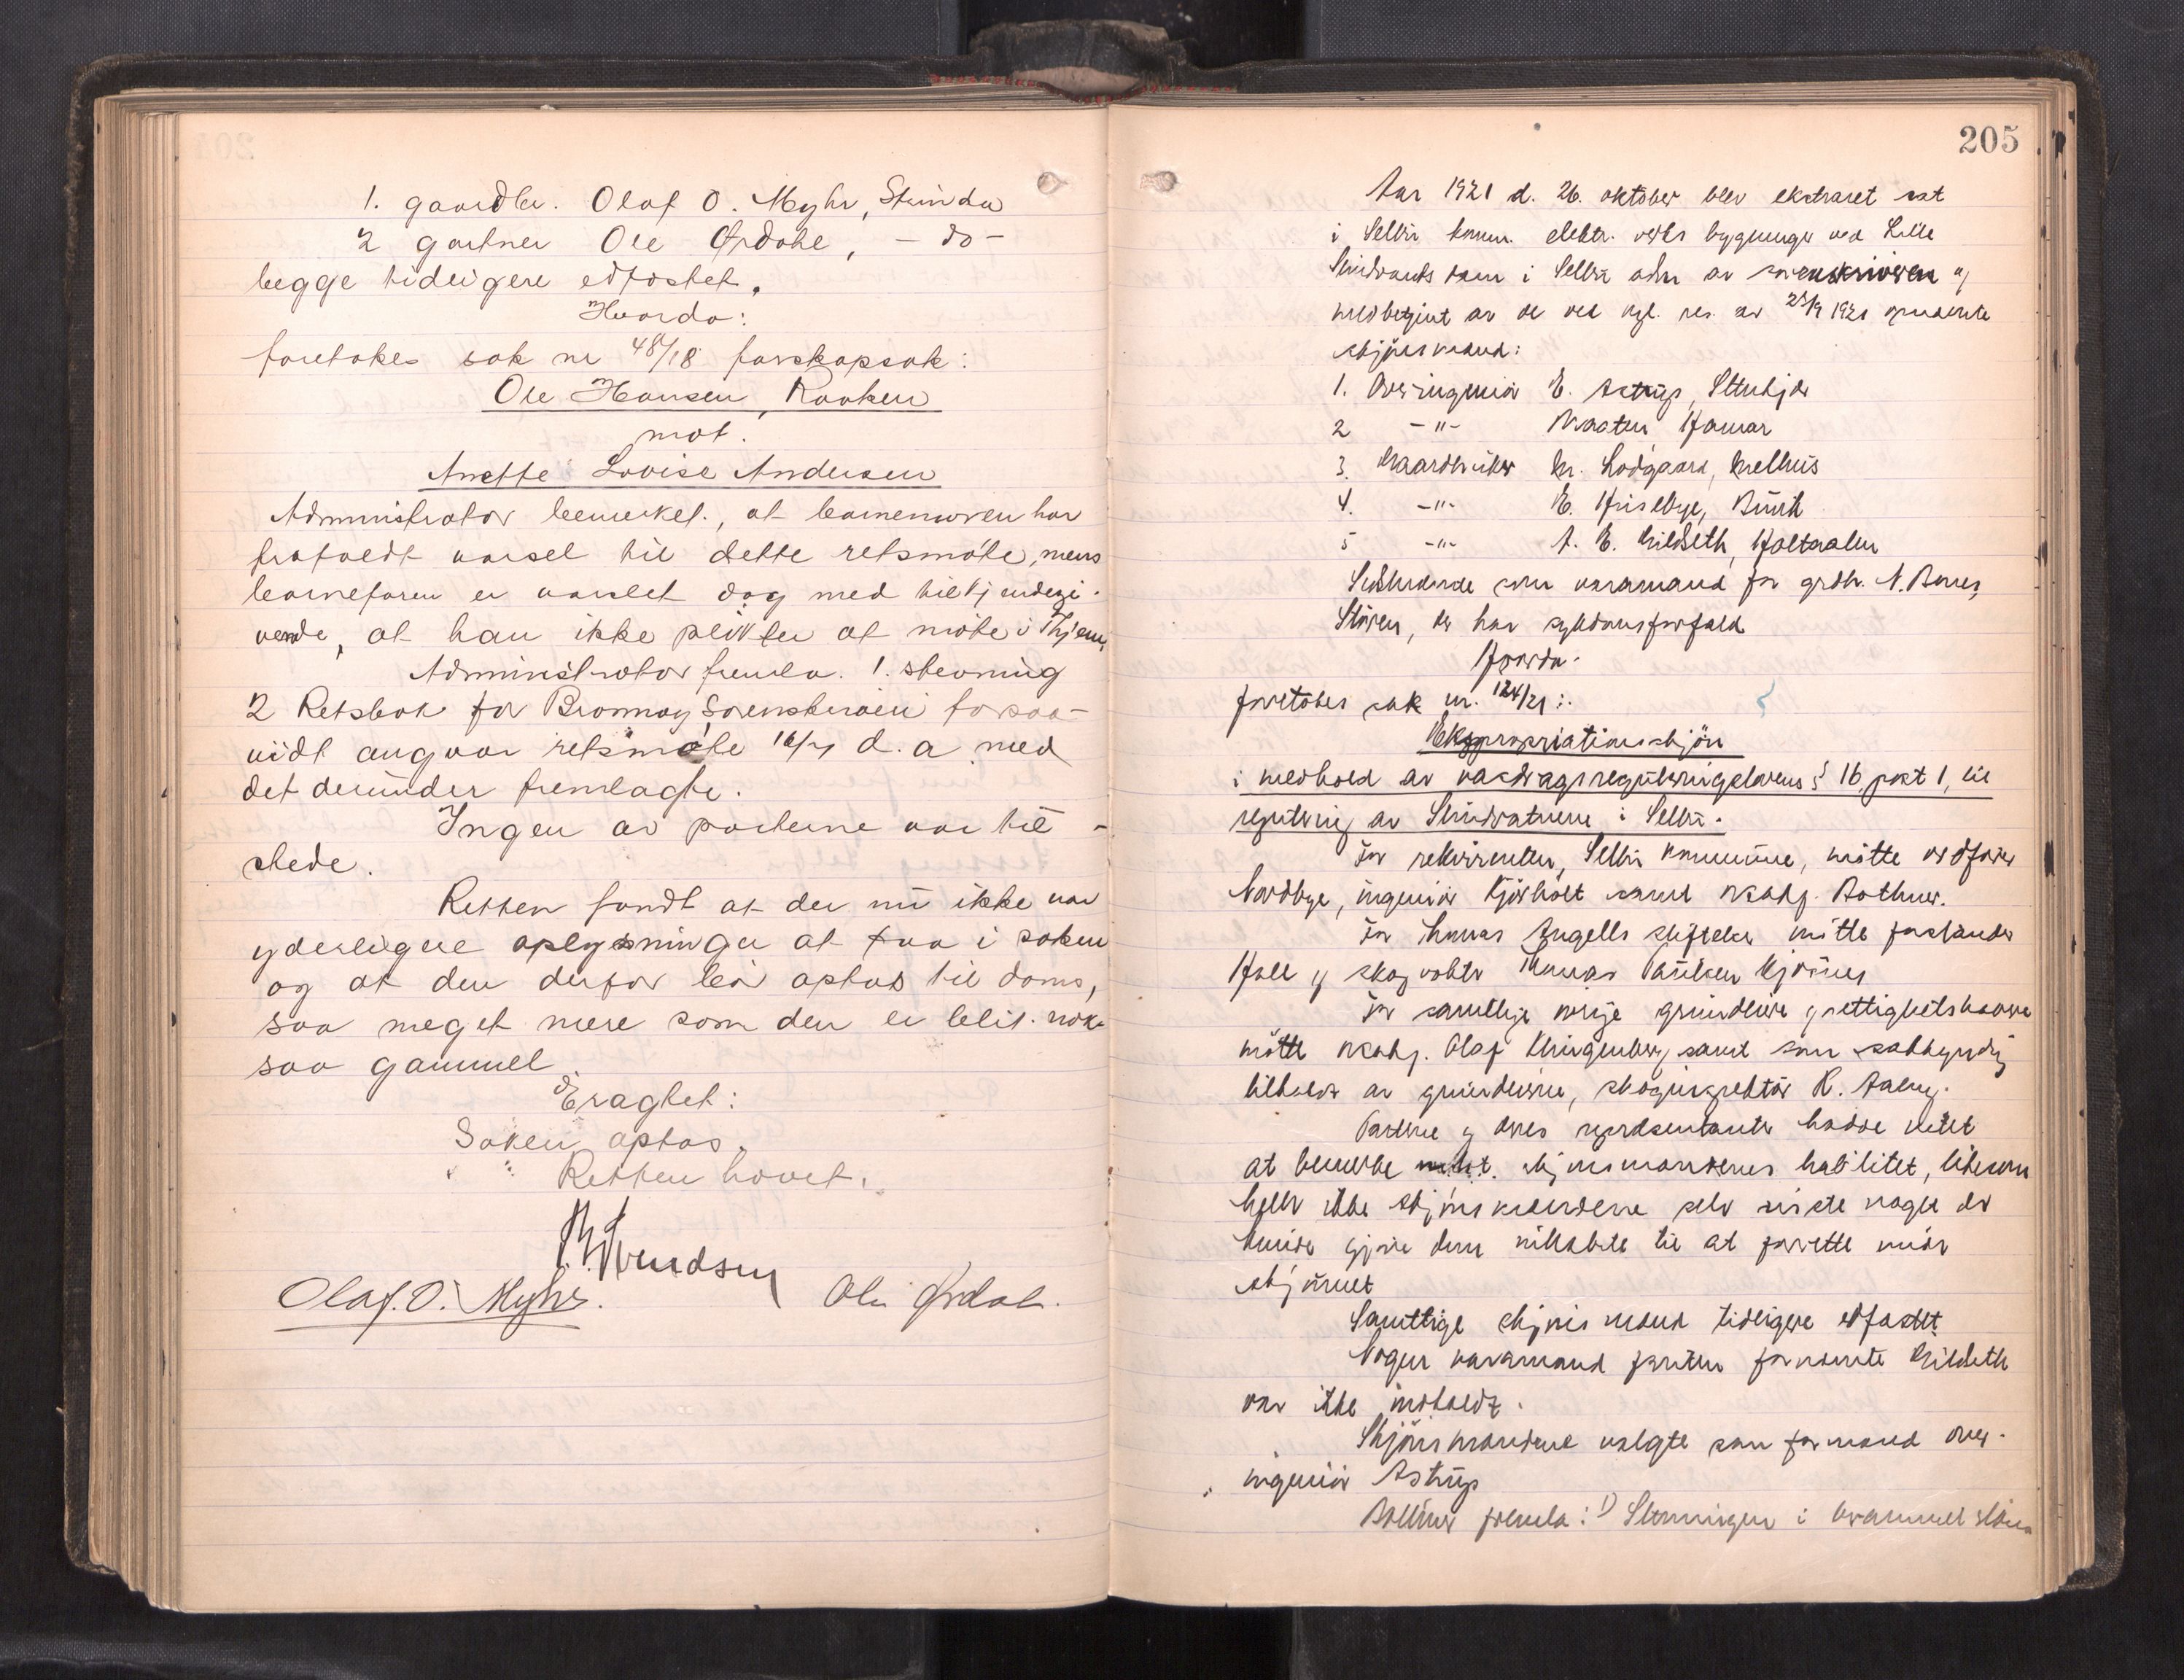 1. gaardbr. Olaf O. Myhr, Strinda
2 gartner Ole Ørdahl, - do -
begge tidligere edfæstet.
Hvorda:
foretokes sak nr 48/18 farskapssak:
Ole Hansen, Kroken
mot.
Anette Lovise Andersen
Administrator bemerket, at barnemoren har
frafaldt varsel til dette retsmøte, mens
barnefaren er varslet dog med tilkjendegi-
vende, at han ikke plikter at møte i Thjem,
Administrator fremla. 1. stevning
2 Retsbok for Brønnøy Sorenskriveri forsaa-
vidt angaar retsmøte 16/ d. a med
det derunder fremlagte.
Ingen av parterne var til-
stede.
Retten fandt at der nu ikke var
yderligere oplysninger at faa i saken
og at den derfor bør optas til doms,
saa meget mere som den er blit. nok-
saa gammel
Eragtet:
Saken optas.
Retten hævet.
Svendsen
Olaf. O. Myhr. Ole Ørdal.
205
Aar 1921 d. 26. oktober blev ekstraret sat
i Selbu komm. elektr. verks bygninger ved Lille
Slindvands dam i Selbu adm av sorenskriveren og
medbetjent av de ved kgl. res. av 23/9 1921 opnævnte
skjønsmænd:
1. Overingeniør E. Astrup, Stenkjær
2 -"- Hamar
3. Gaardbruker M. Lodgaard, Melhus
4. -"- E. Huselbye, Buvik
5 -"- A. E. Hildseth, Holtaalen
Sidstnævnte som varamand for grdbr. N.
Støren, der har sykdomsforfald
Hvorda.
foretokes sak nr. 124/21:
Ekspropriationsskjøn
i medhold av vasdragsreguleringslovens § 16, post 1, til
regulering av Slindvatnene i Selbu.
For rekvirenten, Selbu kommune, møtte ordfører
Nordbye, ingeniør Kjørholt samt o.r.sakf. Bothner.
For Thomas Angells stiftelser møtte forstander
Hall og skogvokter Thomas
For samtlige øvrige grundeiere og rettighetshavere
møtte o.r.sakf. Olaf Klingenberg samt som sakkyndig
tilkaldt av grundeierne, skoginspektør R. Aaberg.
Parterne og deres repræsentanter hadde intet
at bemerke m.h.t. skjønsmændenes habilitet, likesom
heller ikke skjønsmændene selv visste noget der
kunde gjøre dem inhabile til at forrette under
skjønnet
Samtlige skjønsmænd tidligere edfæstet.
Nogen varamand foruten fornævnte Hildseth
var ikke indkaldt.
Skjønsmændene valgte som formand over-
ingeniør Astrup
Bothner fremla: 1) Stevningen i